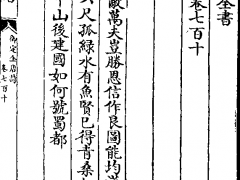 全書
卷七百十
敵萬夫豈勝恩信作良圖能均
尺孤綠水有魚賢已得青桑
山後建國如何號蜀都
御定全唐詩
卷七百十